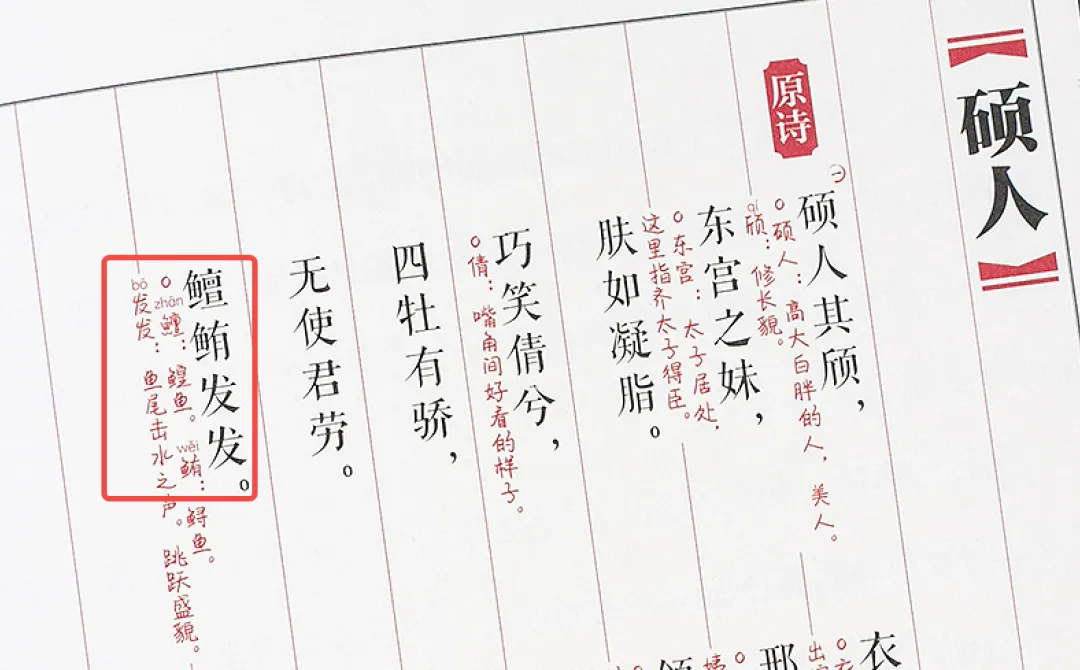 【硕人】
原诗
㊀硕人其颀，
○硕人：高大白胖的人，美人。
qí
颀：修长貌。
东宫之妹，
○东宫：太子居处，
这里指齐太子得臣。
肤如凝脂。
巧笑倩兮，
○倩：嘴角间好看的样子。
四牡有骄，
无使君劳。
鳣鲔发发。
○鳣：鳇鱼。鲔：鲟鱼。
zhān
wěi
bō
发发：鱼尾击水之声。跳跃盛貌。
衣
邢